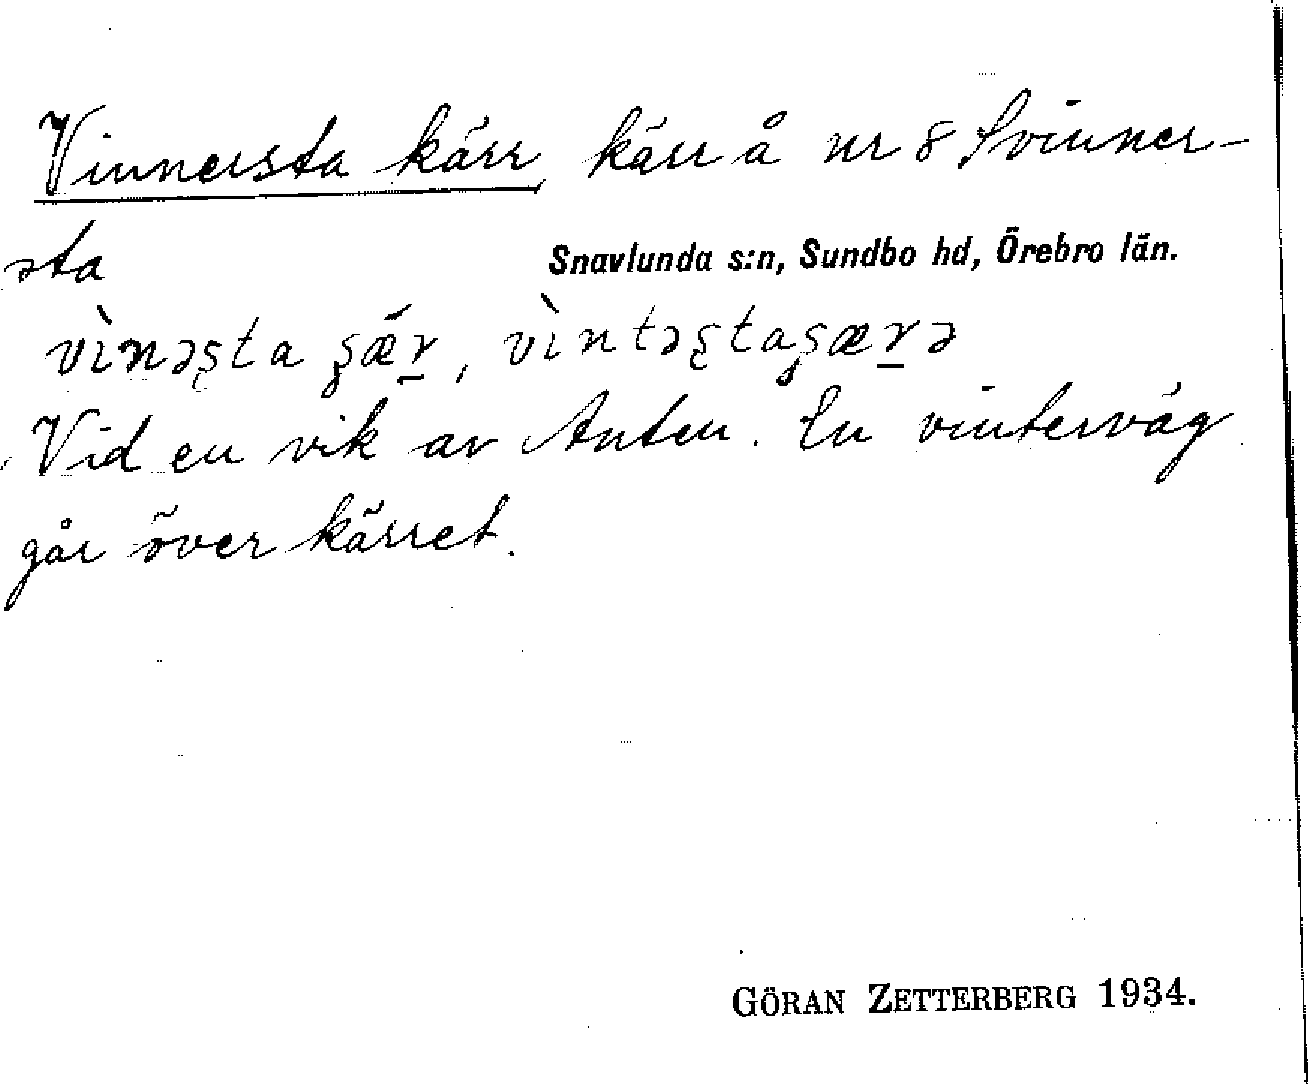 Vinnersta kärr, kärr å nr 8 Svinner-
sta
Snavlunda s:n, Sundbo hd, Örebro län.
vìnəʂta ʂǽr̲, vìntəʂtaʂær̲ə
Vid en vik av Anten. En vinterväg
går över kärret.
GÖRAN ZETTERBERG 1934.